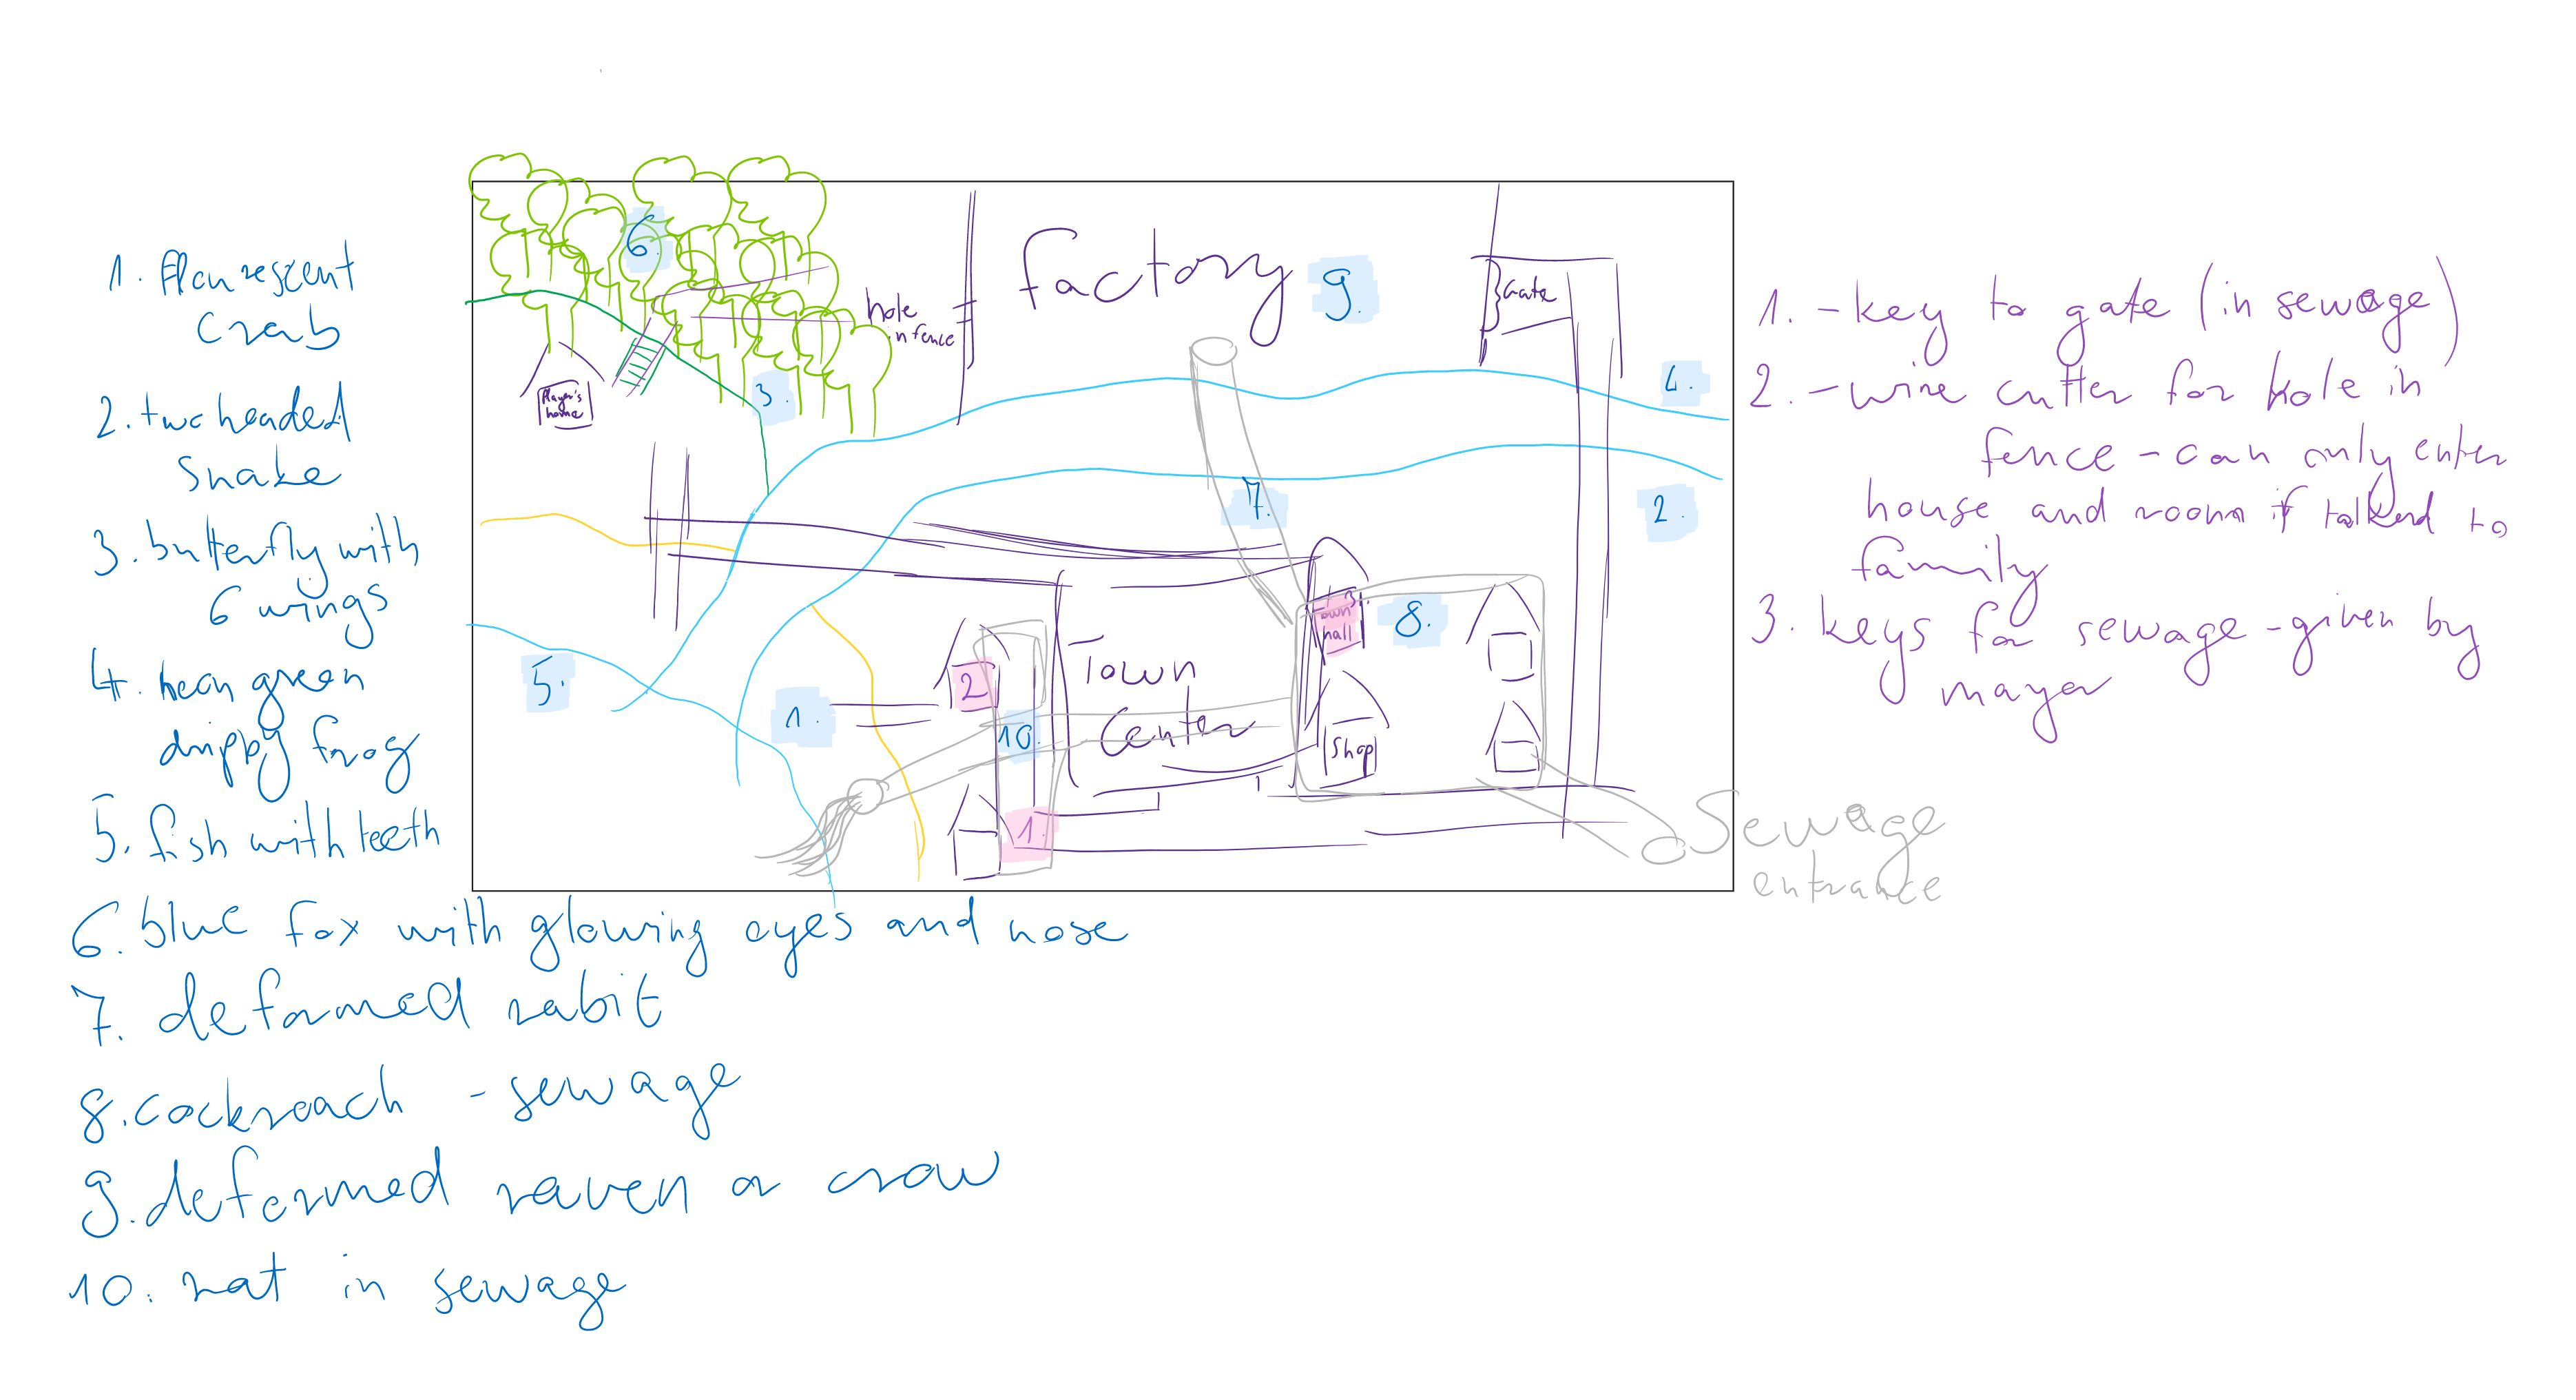 1. Flourescent
Crab
2. two headed
Snake
3. butterfly with
6 wings
4. neon green
drippy frog
5. fish with teeth
6. blue fox with glowing eyes and nose
7. deformed rabit
8. cockroach - sewage
9. deformed raven or crow
10. rat in sewage
6.
3.
Player's
home
hole
in fence
factory 9.
Gate
4.
2.
7.
5.
1.
2
10.
1.
Town
Center
3.
Town
hall
8.
Shop
Sewage
entrance
1. - key to gate (in sewage)
2. - wire cutter for hole in
fence - can only enter
house and room if talked to
family
3. keys for sewage - given by
mayor